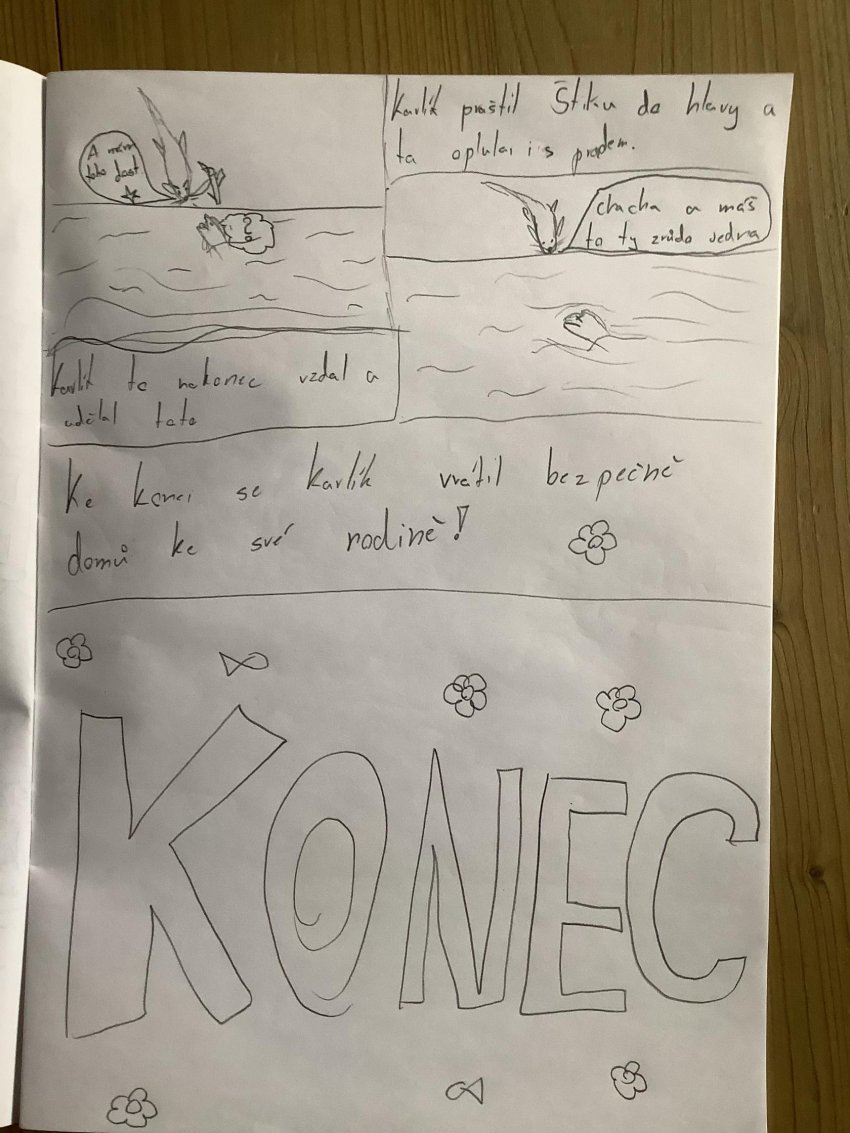 A mám
toho dost
?
Karlík to nakonec vzdal a
udělal toto
Karlík praštil Štiku do hlavy a
ta oplula i s
chacha a máš
to ty zrůdo jedna
Ke konci se Karlík vrátil bezpečně
domů ke své rodině!
KONEC